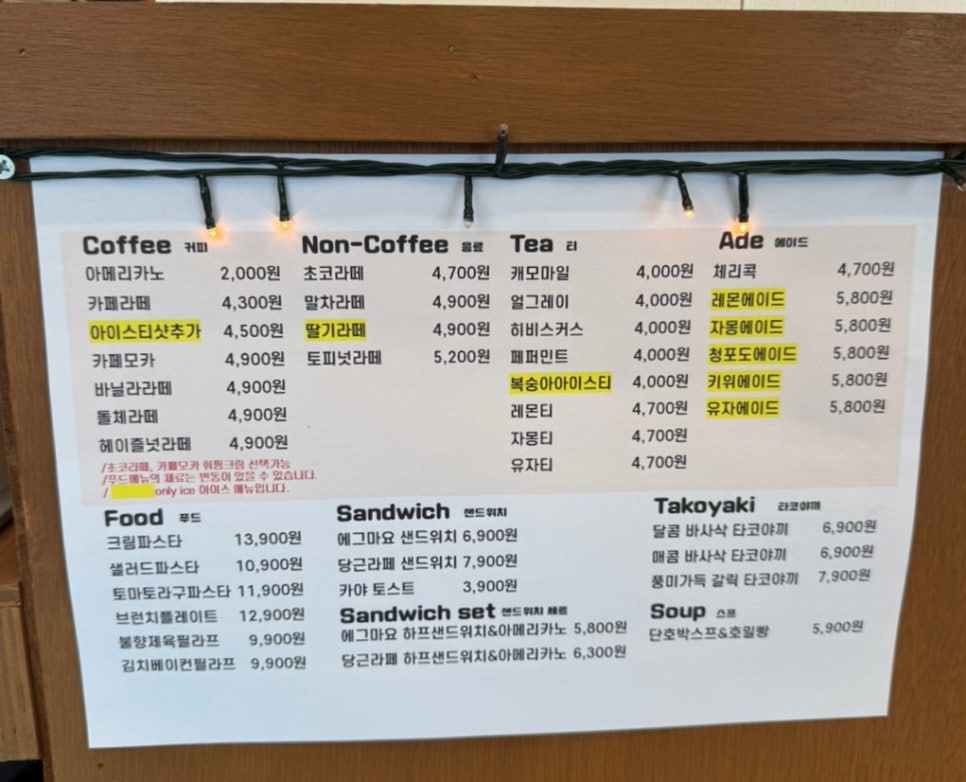 Coffee 커피
아메리카노 2,000원
카페라떼 4,300원
아이스티샷추가 4,500원
카페모카 4,900원
바닐라라떼 4,900원
돌체라떼 4,900원
헤이즐넛라떼 4,900원
/초코라떼, 카페모카 휘핑크림 선택가능
/푸드메뉴의 재료는 변동이 있을 수 있습니다.
/ only ice 아이스 메뉴입니다.
Non-Coffee 음료
초코라떼 4,700원
말차라떼 4,900원
딸기라떼 4,900원
토피넛라떼 5,200원
Tea 티
캐모마일 4,000원
얼그레이 4,000원
히비스커스 4,000원
페퍼민트 4,000원
복숭아아이스티 4,000원
레몬티 4,700원
자몽티 4,700원
유자티 4,700원
Ade 에이드
체리콕 4,700원
레몬에이드 5,800원
자몽에이드 5,800원
청포도에이드 5,800원
키위에이드 5,800원
유자에이드 5,800원
Food 푸드
크림파스타 13,900원
샐러드파스타 10,900원
토마토라구파스타 11,900원
브런치플레이트 12,900원
불향제육필라프 9,900원
김치베이컨필라프 9,900원
Sandwich 샌드위치
에그마요 샌드위치 6,900원
당근라페 샌드위치 7,900원
카야 토스트 3,900원
Sandwich set 샌드위치 세트
에그마요 하프샌드위치&아메리카노 5,800원
당근라페 하프샌드위치&아메리카노 6,300원
Takoyaki 타코야끼
달콤 바사삭 타코야끼 6,900원
매콤 바사삭 타코야끼 6,900원
풍미가득 갈릭 타코야끼 7,900원
Soup 스프
단호박스프&호밀빵 5,900원